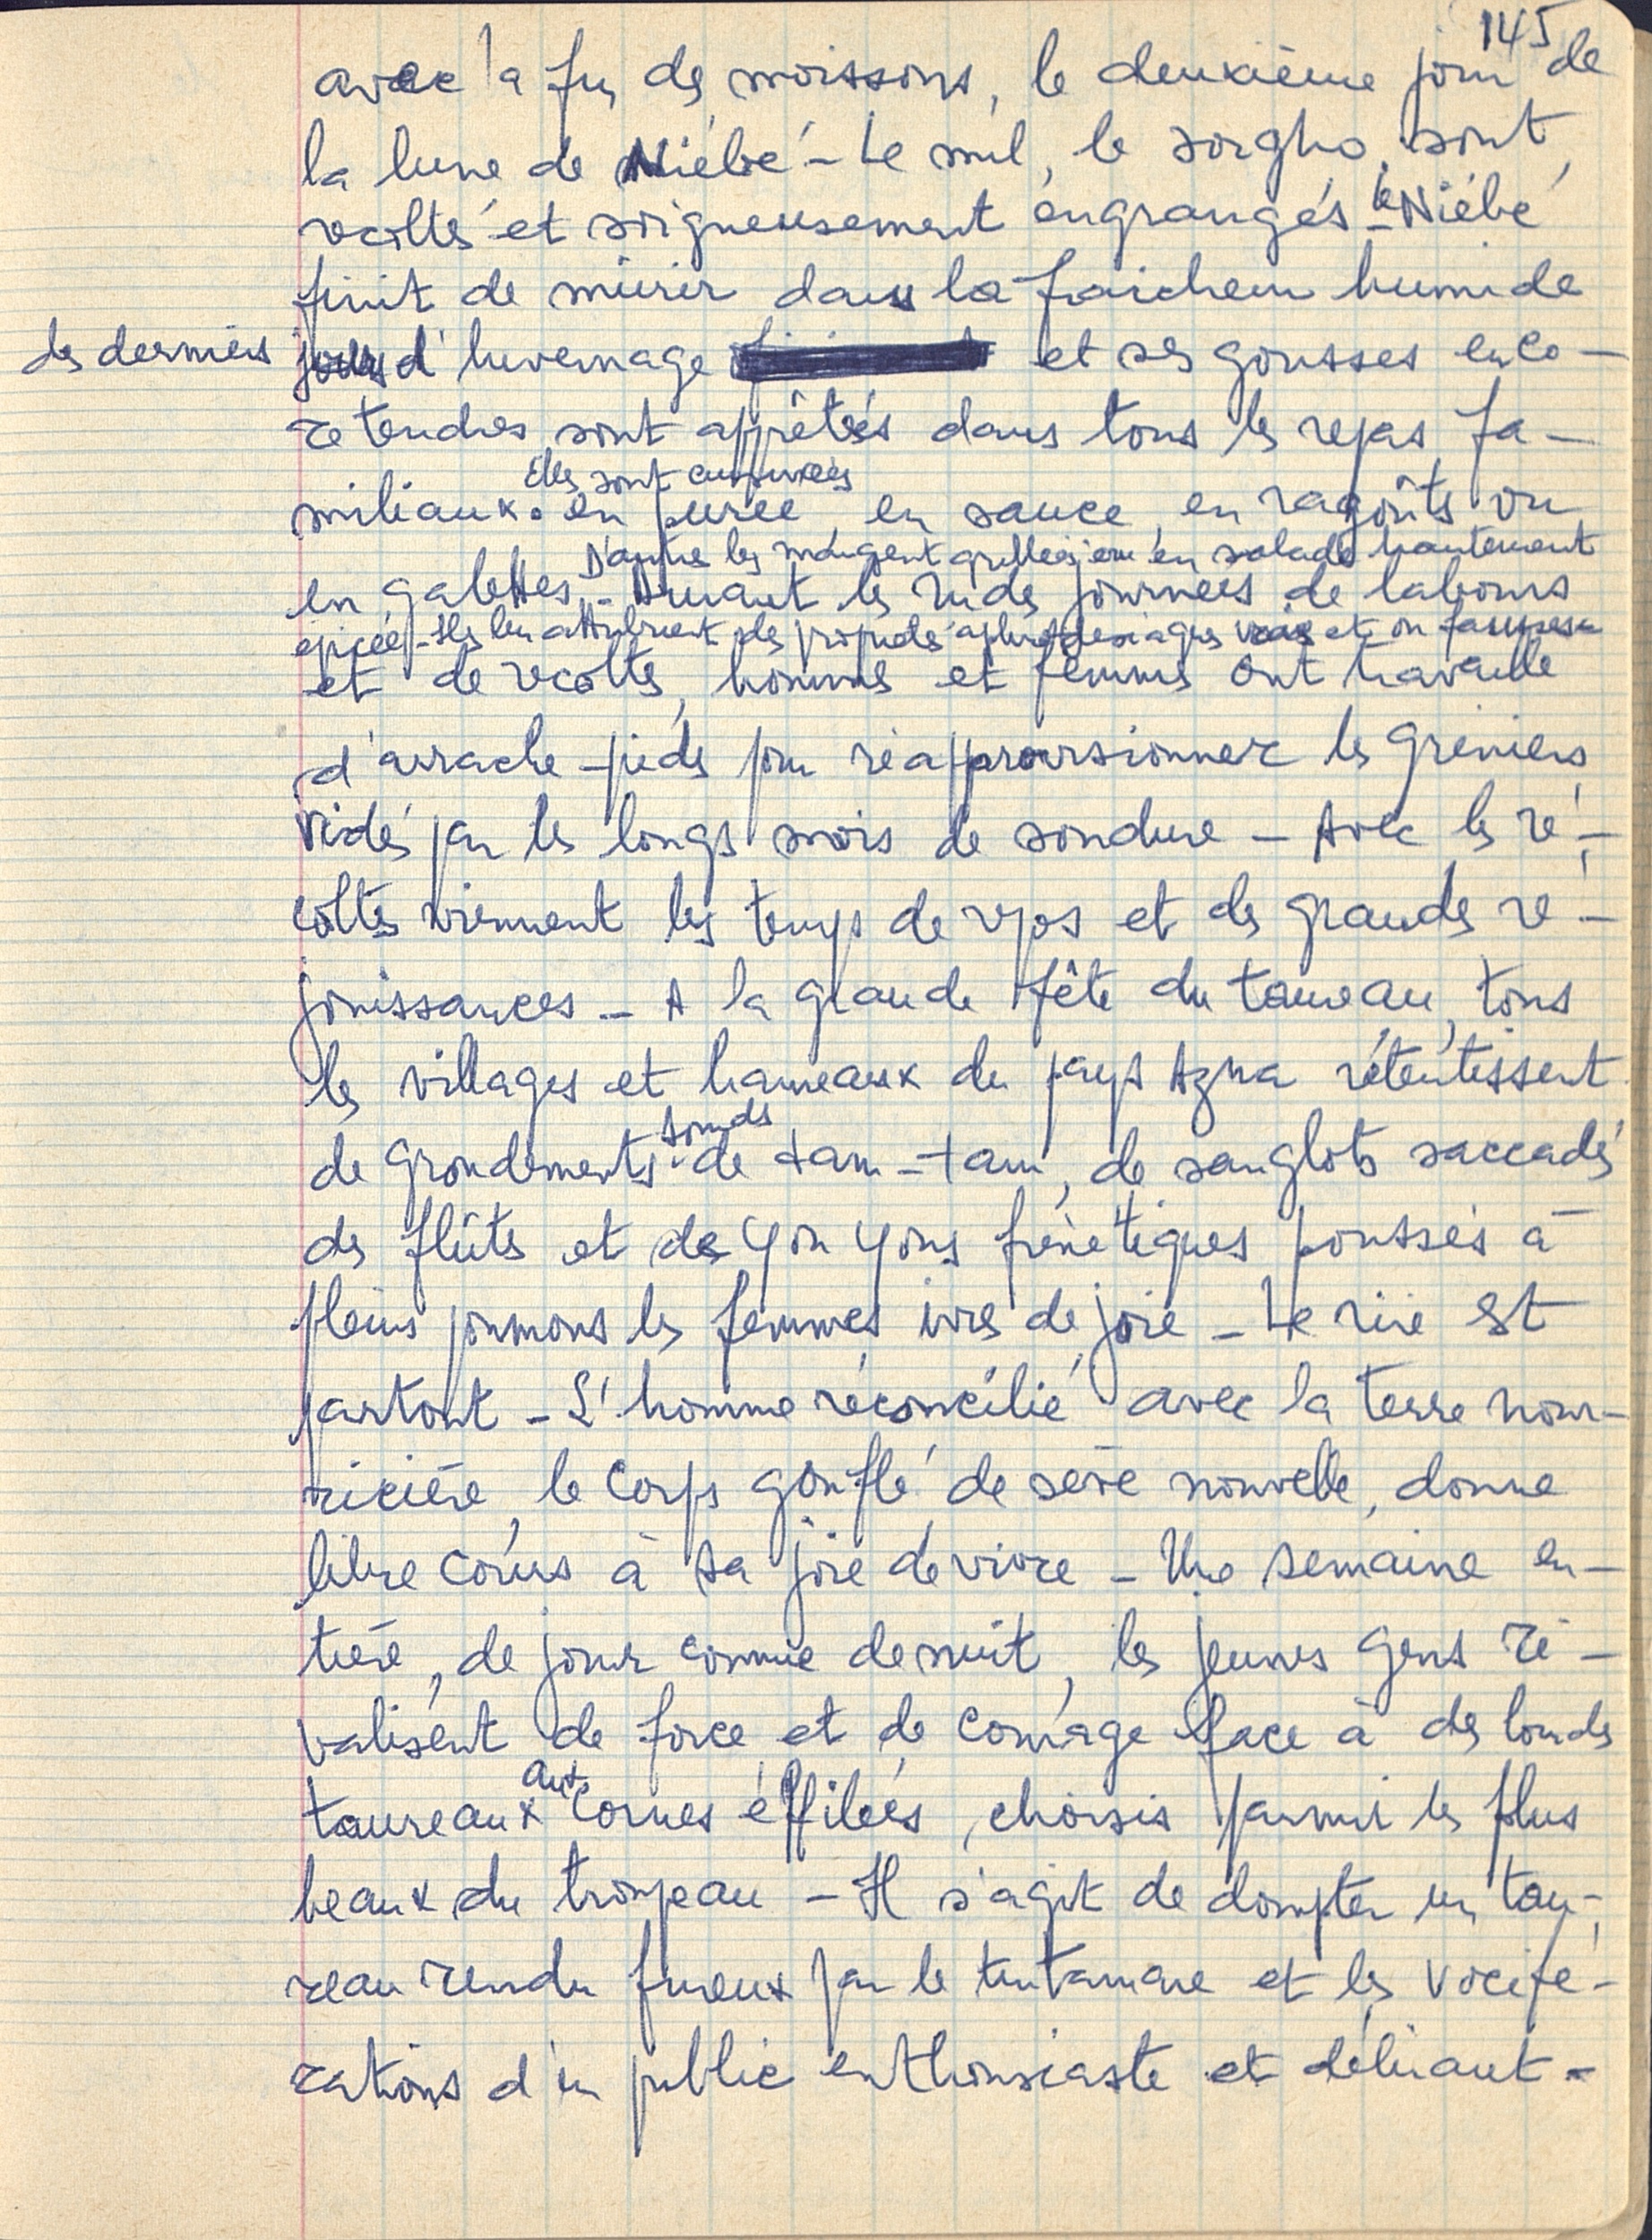 145
avec la fin des moissons, le deuxième jour de
la lune de Niébé - Le mil, le sorgho, sont
récoltés et soigneusement engrangés - le Niébé
finit de mûrir dans la fraicheur humide
des derniers jours d'hivernage et ses gousses enco-
re tendres sont apprêtées dans tous les repas fa-
Elles sont
miliaux. en purée, en sauce, en ragoûts ou
D'autres les mangent grillées, ou en salade hautement
en galettes. - Durant les rudes journées de labours
épicée - Ils leur attribuent des propriétés aphrodisiaques et on
et de récoltes, hommes et femmes ont travaillé
d'arrache-pieds pour réapprovisionner les greniers
vidés par les longs mois de soudure - Avec les ré-
coltes viennent les temps de repos et des grandes ré-
jouissances - A la grande fête du taureau, tous
les villages et hameaux du pays Azna rétentissent
sourds
de grondements de tam-tam, de sanglots saccadés
des flûtes et des you yous frénétiques poussés à
pleins poumons les femmes ivres de joie - Le rire est
partout - L'homme réconcilié avec la terre nour-
ricière, le corps gonflé de sève nouvelle, donne
libre cours à sa joie de vivre - Une semaine en-
tière, de jour comme de nuit, les jeunes gens ri-
valisent de force et de courage face à des lourds
aux
taureaux cornes éffilées, choisis parmi les plus
beaux du troupeau - Il s'agit de dompter un tau-
reau rendu furieux par le tintamarre et les vocifé-
rations d'un public enthousiaste et délirant -